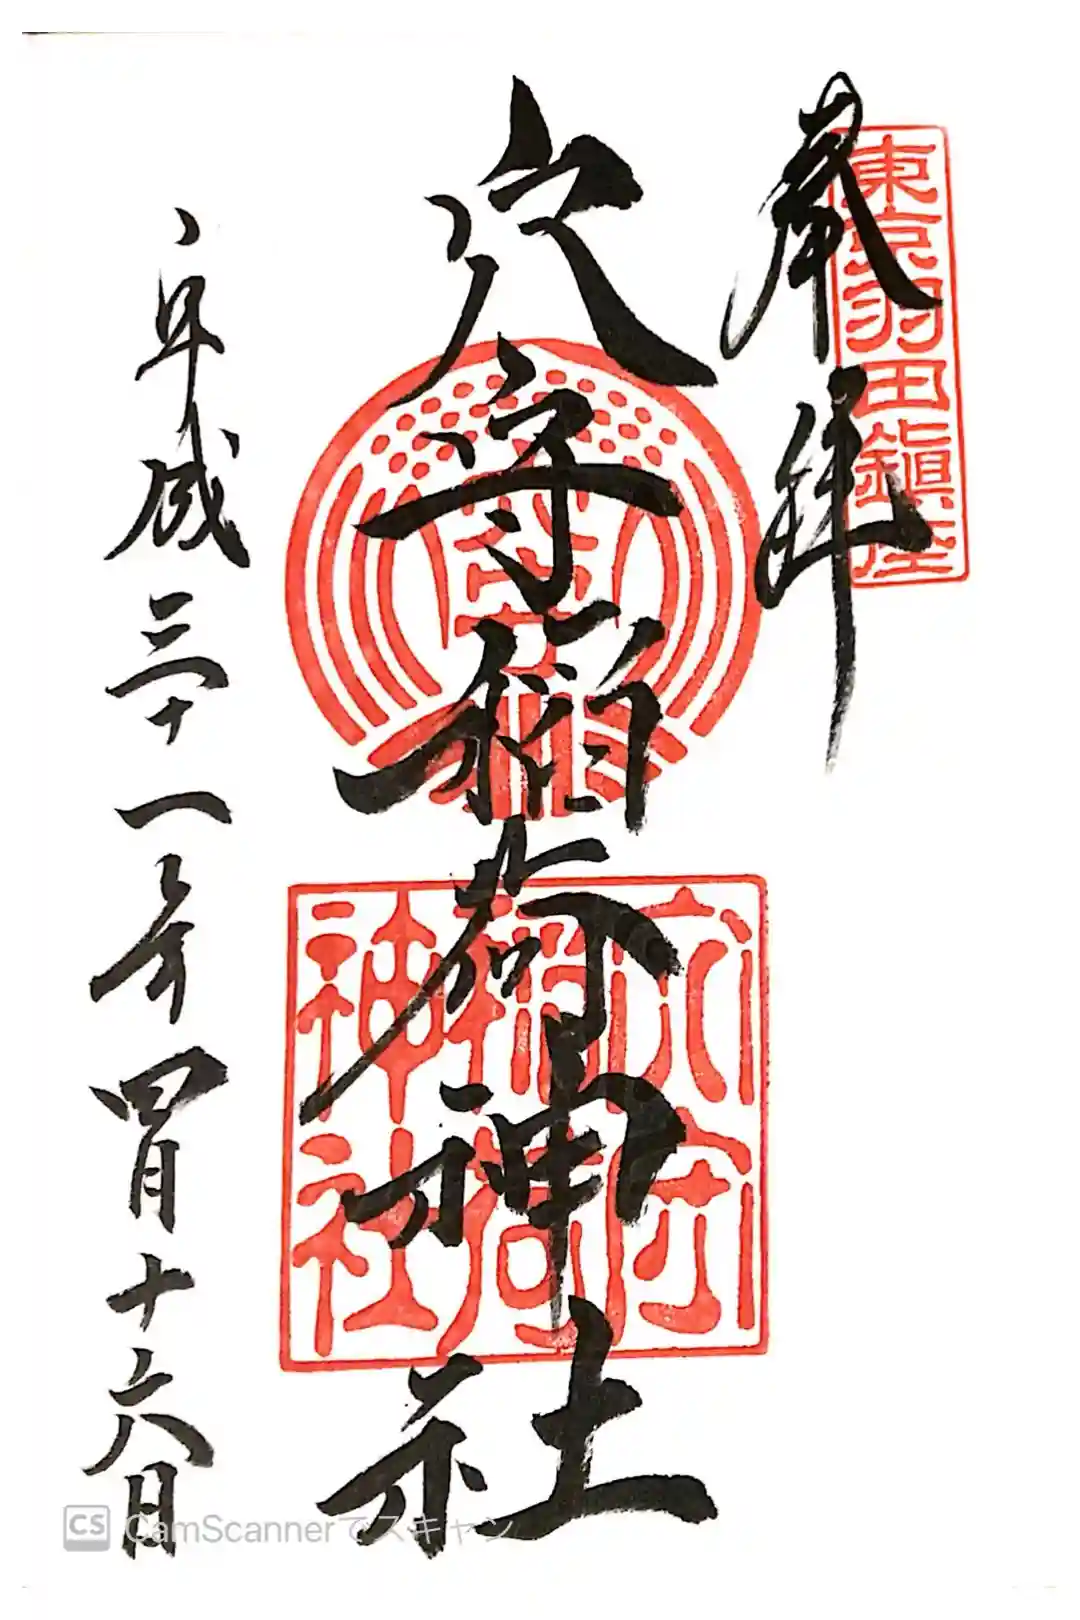 東京羽田鎮座
奉拝
穴守稲荷神社
穴守
稲荷
神社
平成三十一年四月十六日
CS CamScannerでスキャン